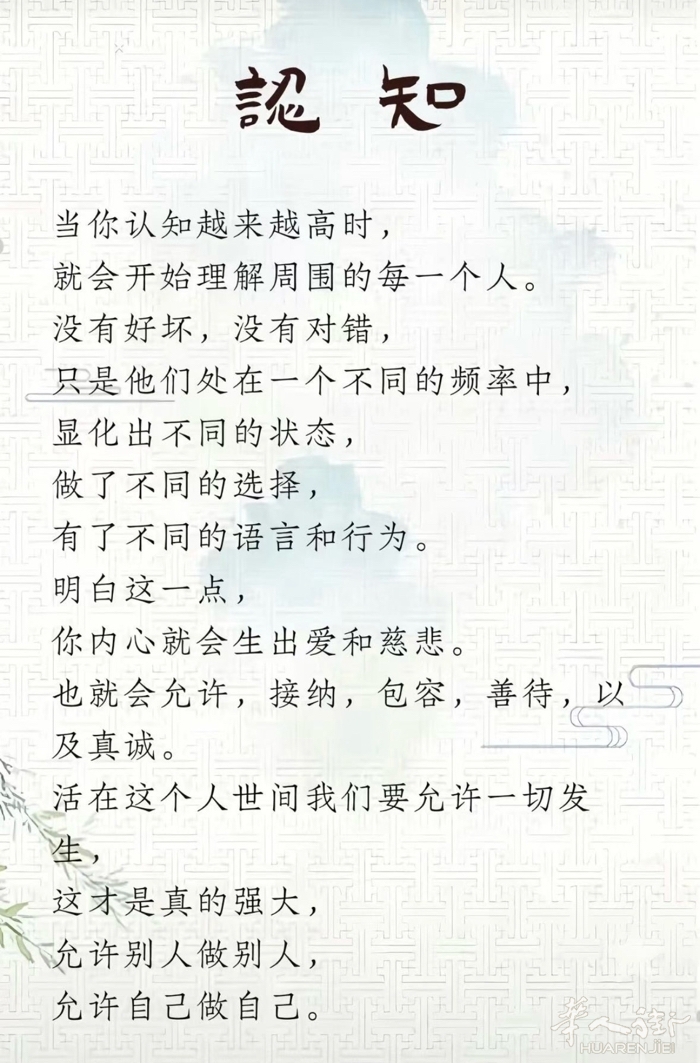 認知
当你认知越来越高时，
就会开始理解周围的每一个人。
没有好坏，没有对错，
只是他们处在一个不同的频率中，
显化出不同的状态，
做了不同的选择，
有了不同的语言和行为。
明白这一点，
你内心就会生出爱和慈悲。
也就会允许，接纳，包容，善待，以
及真诚。
活在这个人世间我们要允许一切发
生，
这才是真的强大，
允许别人做别人，
允许自己做自己。
華人街
HUARENJIE